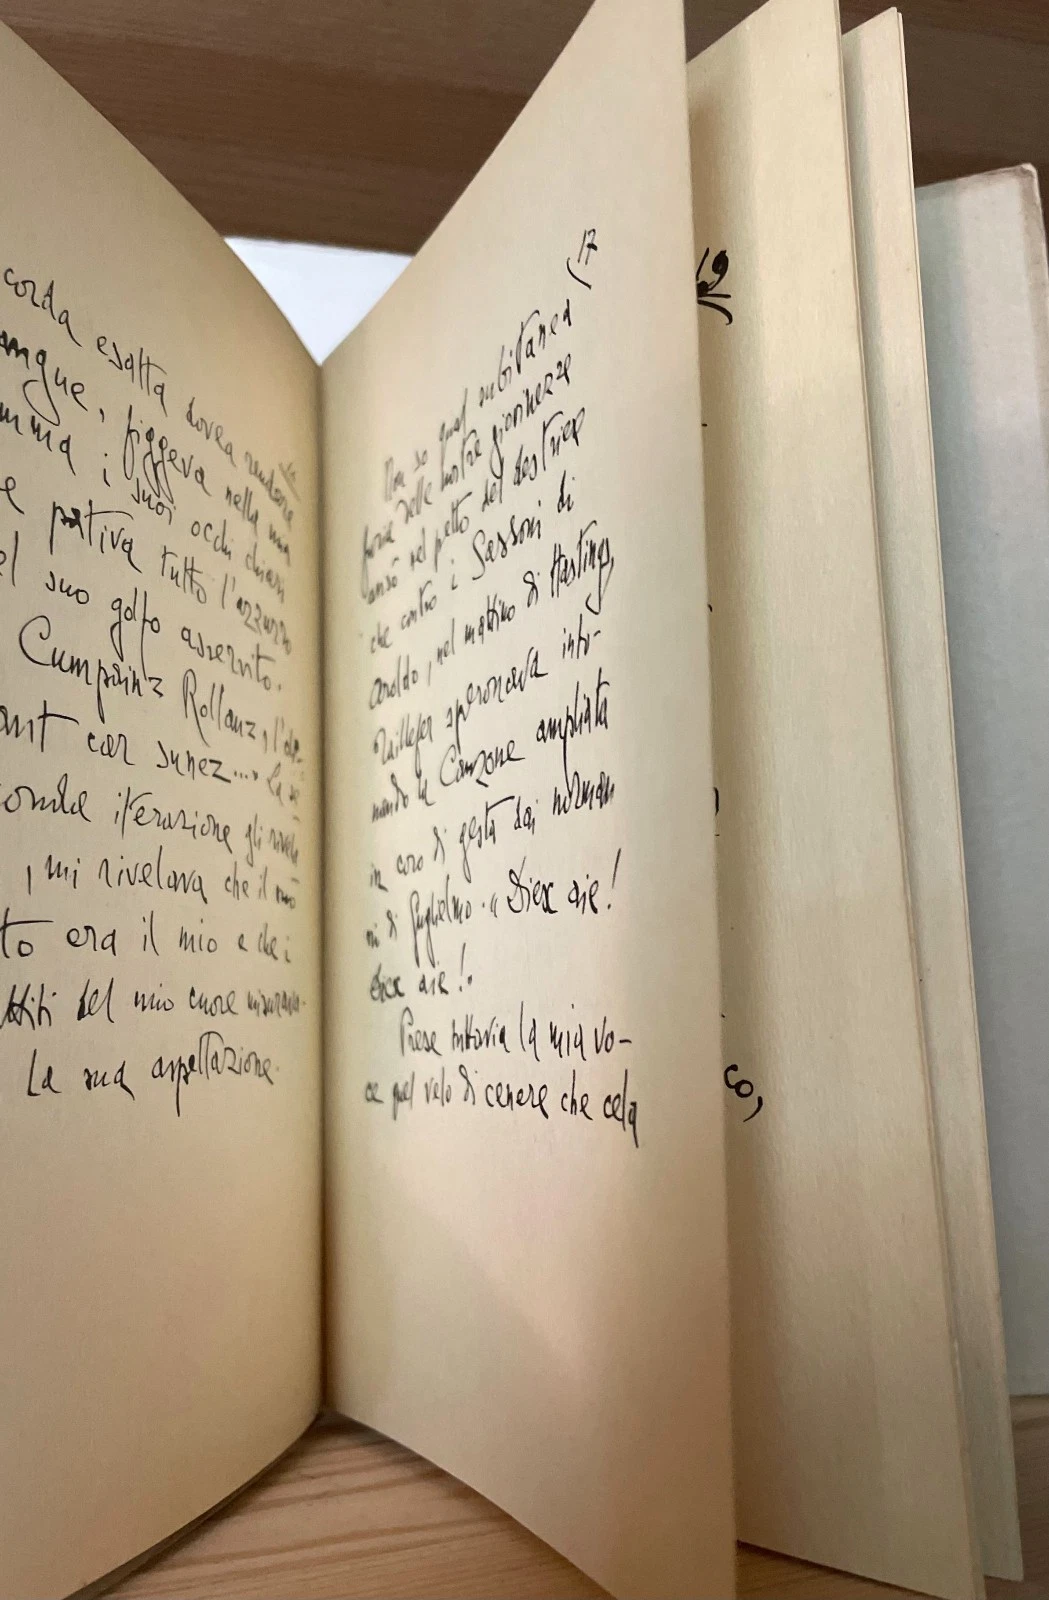 corda esatta dovea rendere
angue, figgeva nella mia
mma i suoi occhi chiari
e pativa tutto l'azzurro
el suo golfo asservito.
Cumpainz Rollanz, l'
ant cor sunez...» La se
conda iterazione gli rivela
, mi rivelava che il
to era il mio e che i
ttiti del mio cuore misurava
la sua aspettazione.
(17
Non so qual subitanea
foria delle nostre giovinezze
ansò nel petto del destrier
che contro i Sassoni di
Aroldo, nel mattino di Hastings,
Taillefer speronava into-
nando la Canzone ampliata
in coro di gesta dai norman
ni di Guglielmo. « Diex aie!
Diex aie!»
Prese tuttavia la mia vo-
ce quel velo di cenere che cela
19
co,